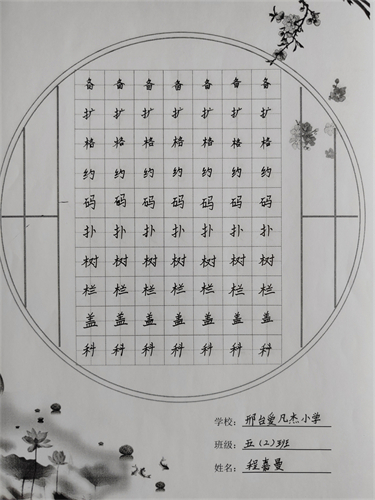 备 备 备 备 备 备 备
扩 扩 扩 扩 扩 扩 扩
格 格 格 格 格 格 格
约 约 约 约 约 约 约
码 码 码 码 码 码 码
扑 扑 扑 扑 扑 扑 扑
树 树 树 树 树 树 树
栏 栏 栏 栏 栏 栏 栏
盖 盖 盖 盖 盖 盖 盖
科 科 科 科 科 科 科
学校: 邢台爱凡杰小学
班级: 五(2)班
姓名: 程嘉曼